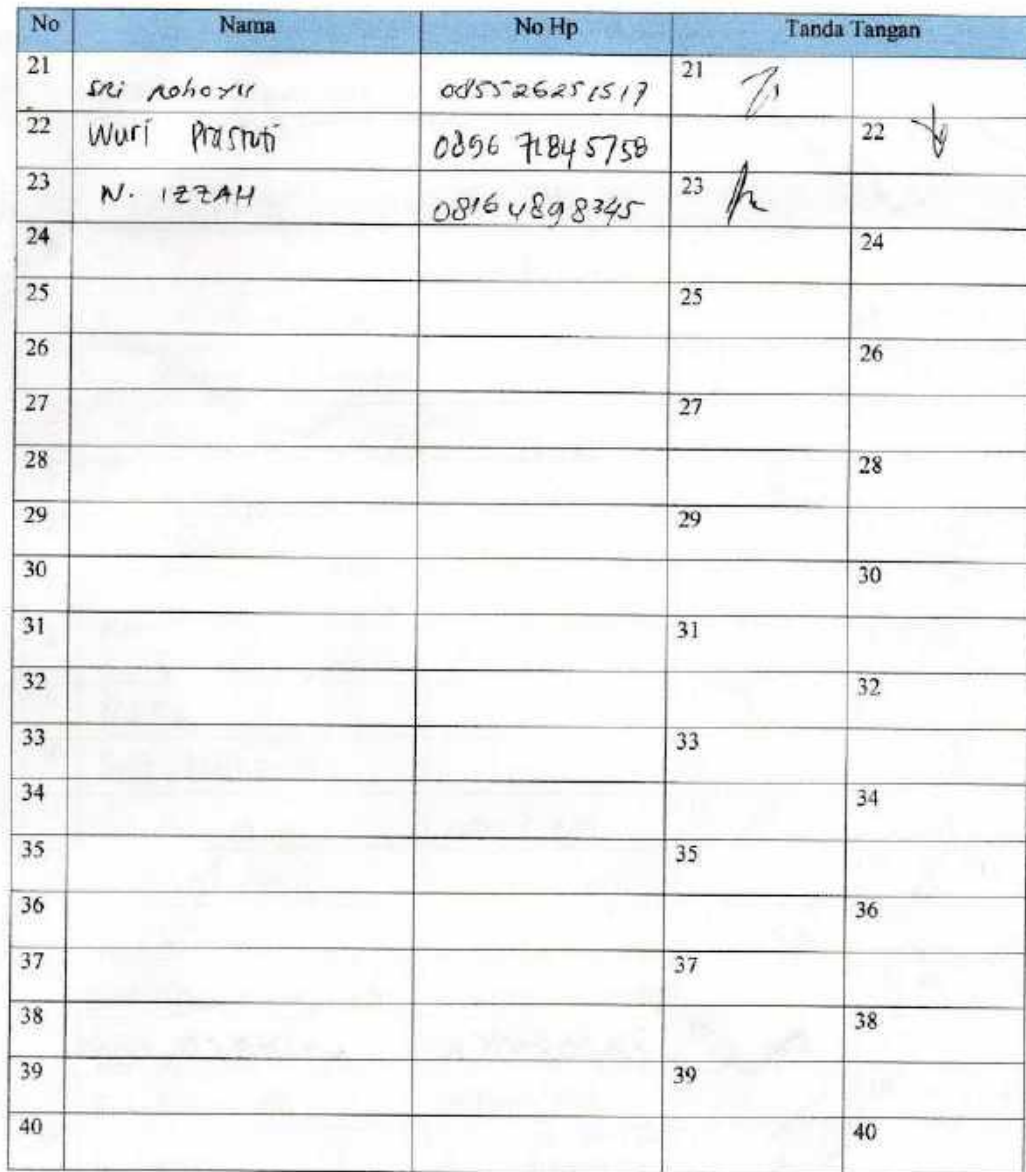 No Nama No Hp Tanda Tangan
21 SRi Rohayu 085526251517 21
22 Wuri Prastuti 0896 71845758 22
23 N. IZZAH 08164898345 23
24 24
25 25
26 26
27 27
28 28
29 29
30 30
31 31
32 32
33 33
34 34
35 35
36 36
37 37
38 38
39 39
40 40